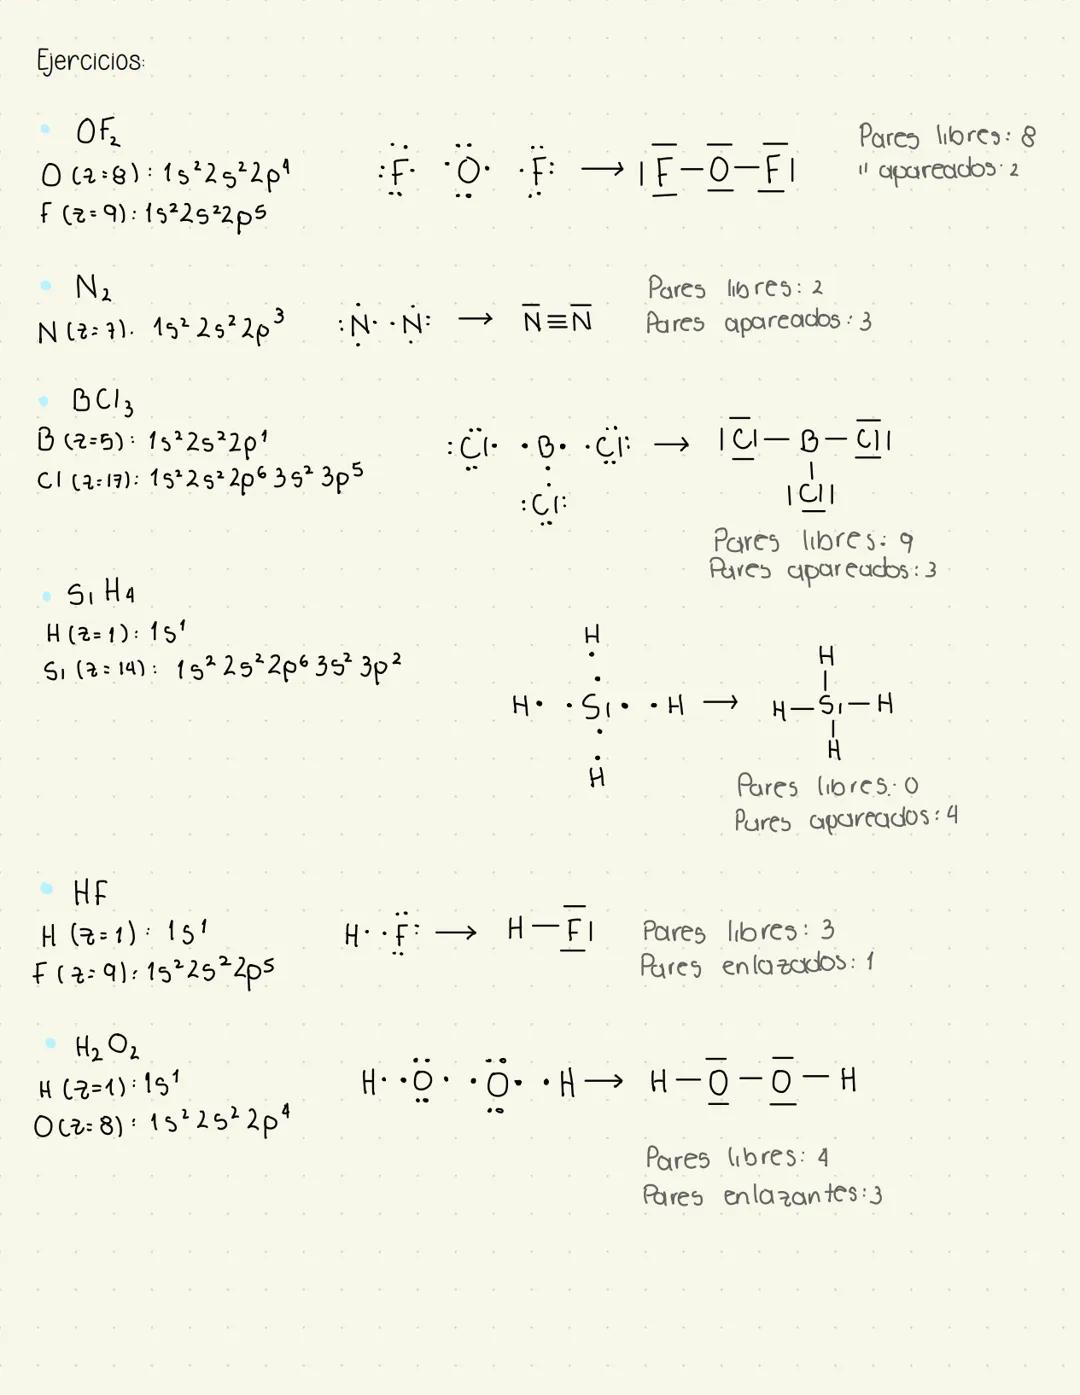 Ejercicios:
• OF₂
O (z=8): 1s²2s²2p⁴
F (z=9): 1s²2s²2p⁵
:F· ·O· ·F: → |F–O–F|
Pares libres: 8
" apareados: 2
• N₂
N (z=7). 1s² 2s² 2p³
:N· ·N: → N≡N
Pares libres: 2
Pares apareados: 3
• BCl₃
B (z=5): 1s²2s²2p¹
Cl (z=17): 1s²2s²2p⁶3s²3p⁵
:Cl· ·B· ·Cl: → |Cl–B–Cl|
:Cl: |Cl|
Pares libres: 9
Pares apareados: 3
• SiH₄
H (z=1): 1s¹
Si (z=14): 1s²2s²2p⁶3s²3p²
H H
H· ·Si· ·H → H–Si–H
H H
Pares libres: 0
Pares apareados: 4
• HF
H (z=1): 1s¹
F (z=9): 1s²2s²2p⁵
H· ·F: → H–F|
Pares libres: 3
Pares enlazados: 1
• H₂O₂
H (z=1): 1s¹
O (z=8): 1s²2s²2p⁴
H· ·O· ·O· ·H → H–O–O–H
Pares libres: 4
Pares enlazantes: 3